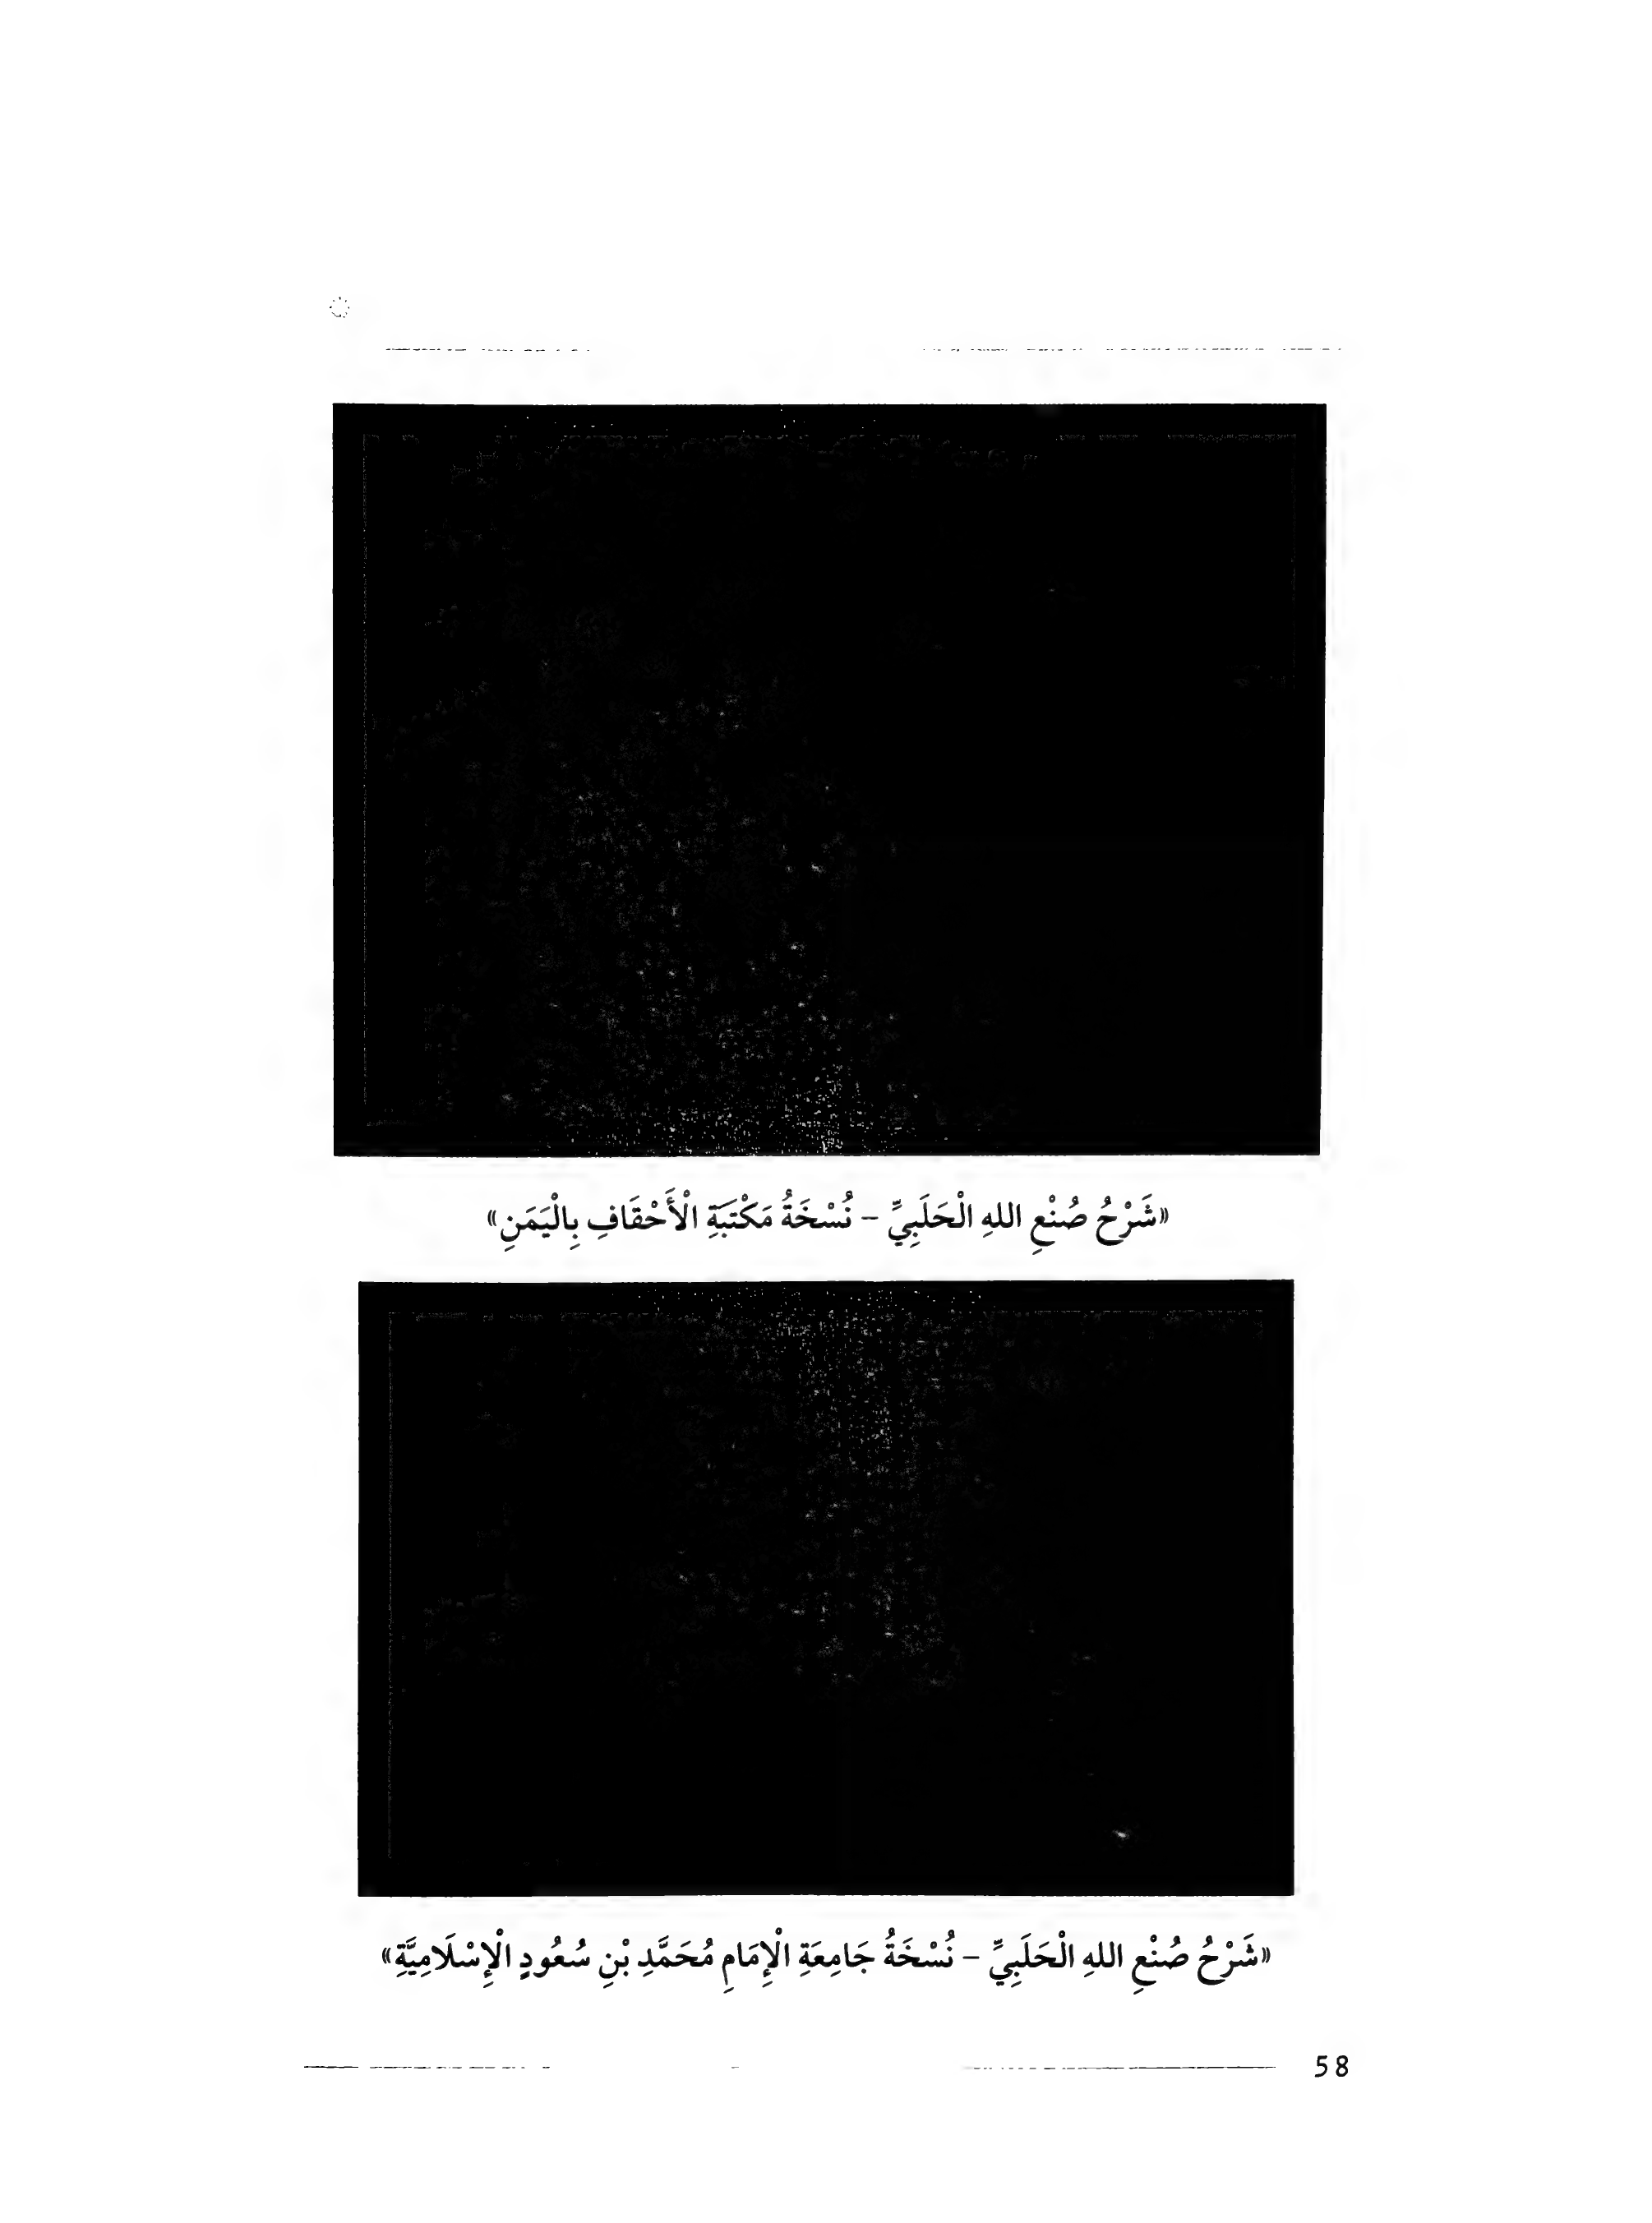 «شَرْحُ صُنْعِ اللهِ الْحَلَبِيِّ – نُسْخَةُ مَكْتَبَةِ الْأَحْقَافِ بِالْيَمَنِ»
«شَرْحُ صُنْعِ اللهِ الْحَلَبِيِّ – نُسْخَةُ جَامِعَةِ الْإِمَامِ مُحَمَّدِ بْنِ سُعُودٍ الْإِسْلَامِيَّةِ»
58